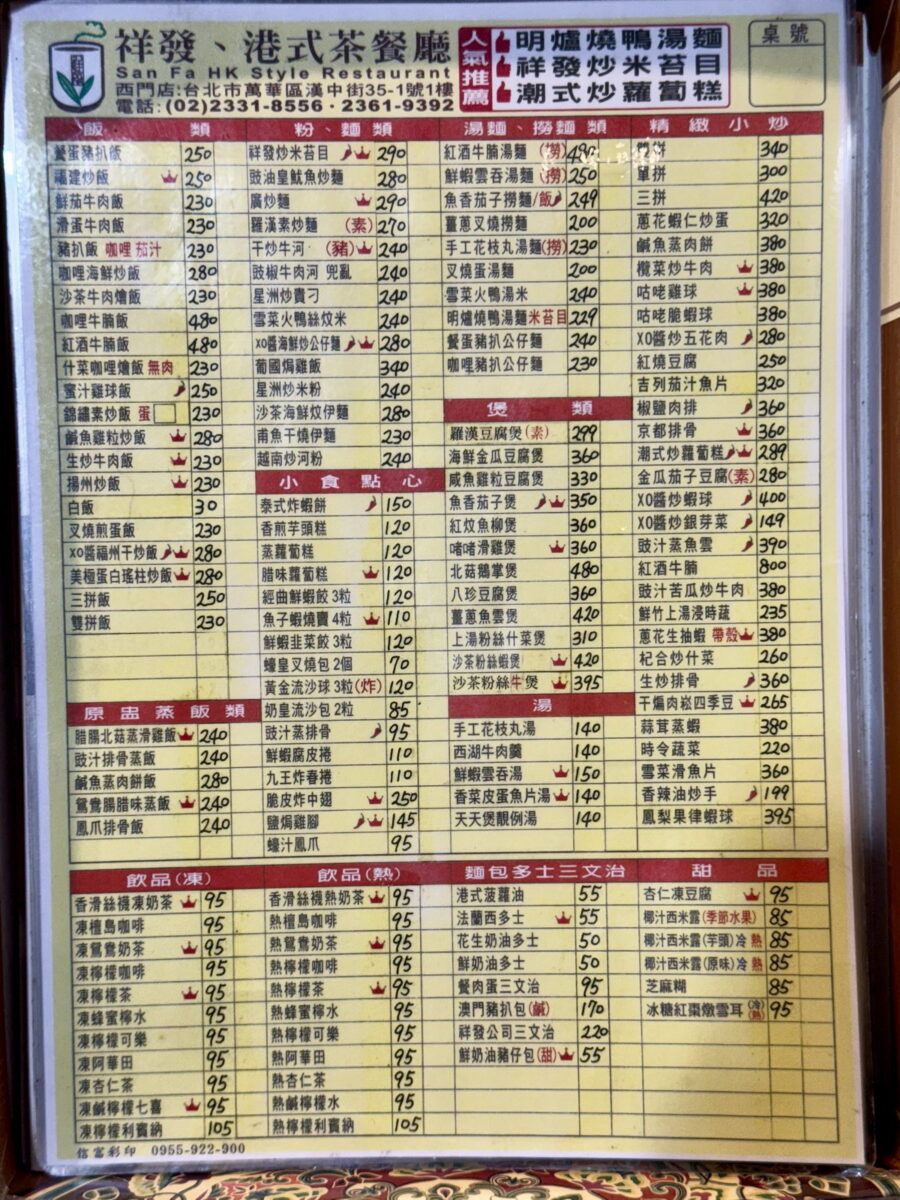 祥發、港式茶餐廳
San Fa HK Style Restaurant
西門店:台北市萬華區漢中街35-1號1樓
電話:(02)2331-8556·2361-9392
人氣推薦
明爐燒鴨湯麵
祥發炒米苔目
潮式炒蘿蔔糕
桌號
飯類
餐蛋豬扒飯 250
福建炒飯 250
鮮茄牛肉飯 230
滑蛋牛肉飯 230
豬扒飯 咖哩 茄汁 230
咖哩海鮮炒飯 280
沙茶牛肉燴飯 230
咖哩牛腩飯 480
紅酒牛腩飯 480
什菜咖哩燴飯 無肉 230
蜜汁雞球飯 250
錦繡素炒飯 蛋 230
鹹魚雞粒炒飯 280
生炒牛肉飯 230
揚州炒飯 230
白飯 30
叉燒煎蛋飯 230
XO醬福州干炒飯 280
美極蛋白瑤柱炒飯 280
三拼飯 250
雙拼飯 230
原盅蒸飯類
腊腸北菇蒸滑雞飯 240
豉汁排骨蒸飯 240
鹹魚蒸肉餅飯 280
鴛鴦腸腊味蒸飯 240
鳳爪排骨飯 240
粉、麵類
祥發炒米苔目 290
豉油皇魷魚炒麵 280
廣炒麵 290
羅漢素炒麵 (素) 270
干炒牛河 (豬) 240
豉椒牛肉河 兜亂 240
星洲炒貴刁 240
雪菜火鴨絲炆米 240
XO醬海鮮炒公仔麵 280
葡國焗雞飯 340
星洲炒米粉 240
沙茶海鮮炆伊麵 280
甫魚干燒伊麵 230
越南炒河粉 240
小食點心
泰式炸蝦餅 150
香煎芋頭糕 120
蒸蘿蔔糕 120
腊味蘿蔔糕 120
經曲鮮蝦餃 3粒 120
魚子蝦燒賣 4粒 110
鮮蝦韭菜餃 3粒 120
蠔皇叉燒包 2個 70
黃金流沙球 3粒(炸) 120
奶皇流沙包 2粒 85
豉汁蒸排骨 95
鮮蝦腐皮捲 110
九王炸春捲 110
脆皮炸中翅 250
鹽焗雞腳 145
蠔汁鳳爪 95
湯麵、撈麵類
紅酒牛腩湯麵 (撈) 480
鮮蝦雲吞湯麵 (撈) 250
魚香茄子撈麵/飯 249
薑蔥叉燒撈麵 200
手工花枝丸湯麵(撈) 230
叉燒蛋湯麵 200
雪菜火鴨湯米 240
明爐燒鴨湯麵米苔目 229
餐蛋豬扒公仔麵 240
咖哩豬扒公仔麵 230
煲類
羅漢豆腐煲(素) 299
海鮮金瓜豆腐煲 360
咸魚雞粒豆腐煲 330
魚香茄子煲 350
紅炆魚柳煲 360
啫啫滑雞煲 360
北菇鵝掌煲 480
八珍豆腐煲 360
薑蔥魚雲煲 420
上湯粉絲什菜煲 310
沙茶粉絲蝦煲 420
沙茶粉絲牛煲 395
湯
手工花枝丸湯 140
西湖牛肉羹 140
鮮蝦雲吞湯 150
香菜皮蛋魚片湯 140
天天煲靚例湯 140
精緻小炒
雙拼 340
單拼 300
三拼 420
蔥花蝦仁炒蛋 320
鹹魚蒸肉餅 380
欖菜炒牛肉 380
咕咾雞球 380
咕咾脆蝦球 380
XO醬炒五花肉 280
紅燒豆腐 250
吉列茄汁魚片 320
椒鹽肉排 360
京都排骨 360
潮式炒蘿蔔糕 289
金瓜茄子豆腐(素) 280
XO醬炒蝦球 400
XO醬炒銀芽菜 149
豉汁蒸魚雲 390
紅酒牛腩 800
豉汁苦瓜炒牛肉 380
鮮竹上湯浸時蔬 235
蔥花生抽蝦 帶殼 380
杞合炒什菜 260
生炒排骨 360
干煸肉崧四季豆 265
蒜茸蒸蝦 380
時令蔬菜 220
雪菜滑魚片 360
香辣油炒手 199
鳳梨果律蝦球 395
飲品(凍)
香滑絲襪凍奶茶 95
凍檀島咖啡 95
凍鴛鴦奶茶 95
凍檸檬咖啡 95
凍檸檬茶 95
凍蜂蜜檸水 95
凍檸檬可樂 95
凍阿華田 95
凍杏仁茶 95
凍鹹檸檬七喜 95
凍檸檬利賓納 105
飲品(熱)
香滑絲襪熱奶茶 95
熱檀島咖啡 95
熱鴛鴦奶茶 95
熱檸檬咖啡 95
熱檸檬茶 95
熱蜂蜜檸水 95
熱檸檬可樂 95
熱阿華田 95
熱杏仁茶 95
熱鹹檸檬水 95
熱檸檬利賓納 105
麵包多士三文治
港式菠蘿油 55
法蘭西多士 55
花生奶油多士 50
鮮奶油多士 50
餐肉蛋三文治 95
澳門豬扒包(鹹) 170
祥發公司三文治 220
鮮奶油豬仔包(甜) 55
甜品
杏仁凍豆腐 95
椰汁西米露(季節水果) 85
椰汁西米露(芋頭)冷 熱 85
椰汁西米露(原味)冷 熱 85
芝麻糊 85
冰糖紅棗燉雪耳(冷)(熱) 95
信富彩印 0955-922-900